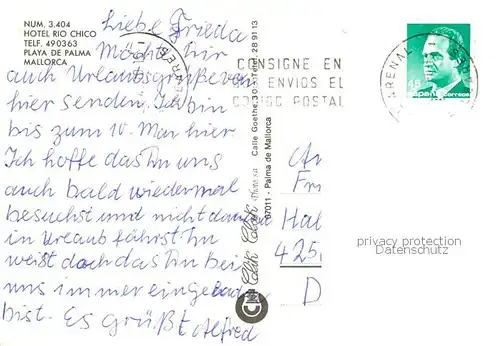 NUM. 3.404
HOTEL RIO CHICO
TELF. 490363
PLAYA DE PALMA
MALLORCA
Liebe Frieda
Möchte Dir
auch Urlaubsgrüße von
hier senden. Ich bin
bis zum 10. Mai hier
Ich hoffe das Du uns
auch bald wiedermal
besuchst und nicht
in Urlaub fährst Du
weißt doch das Du bei
uns immer eingeladen
bist. Es grüßt Alfred
CONSIGNE EN
ENVIOS EL
CODIGO POSTAL
ARENAL
45
españa correos
Calle Goethe, 30 Telef. 28 91 13
07011 - Palma de Mallorca
Click Clack
An
Fr
Hal
425
D
privacy protection
Datenschutz